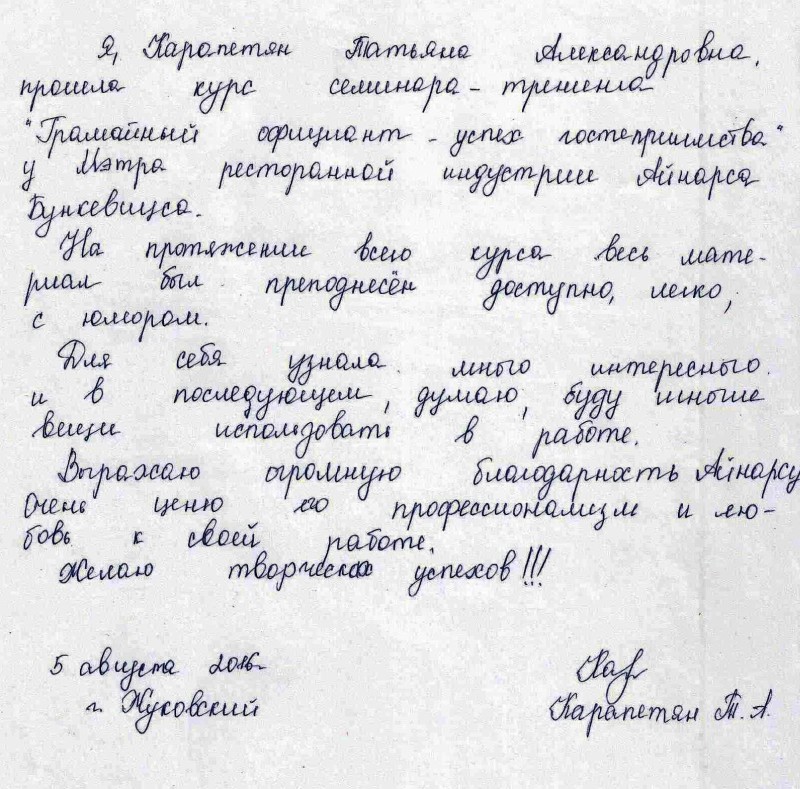 Я, Карапетян Татьяна Александровна,
прошла курс семинара - тренинга
"Грамайный официант - успех гостеприимства"
у Мэтра ресторанной индустрии Айнарса
Бункевицса.
На протяжении всего курса весь мате-
риал был преподнесён доступно, легко,
с юмором.
Для себя узнала много интересного
и в последующем, думаю, буду многие
вещи использовать в работе.
Выражаю огромную благодарность Айнарсу
Очень ценю его профессионализм и лю-
бовь к своей работе.
Желаю творческих успехов!!!
5 августа 2016г
г. Жуковский
Карапетян Т. А.